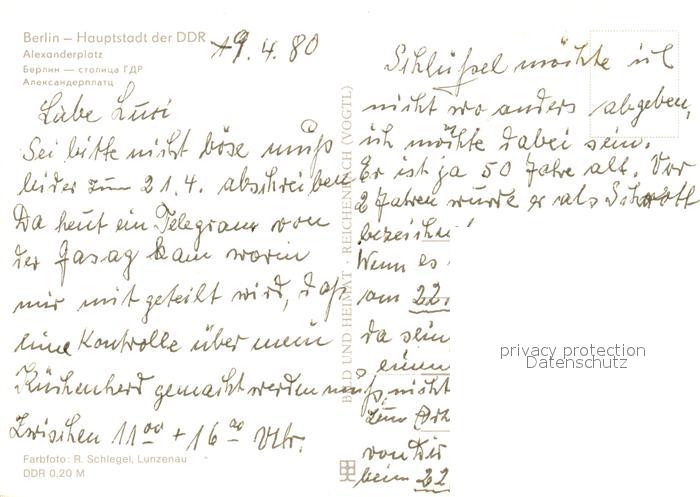 Berlin — Hauptstadt der DDR
Alexanderplatz
Берлин — столица ГДР
Александерплатц
19.4.80
Liebe Lusi
Sei bitte nicht böse muß
leider zum 21.4. abschreiben
Da heut ein Telegram von
der Gasag kam worin
mir mit geteilt wird, daß
eine Kontrolle über mein
Küchenherd gemacht werden muß,
Zwischen 11 00 + 16 00 Uhr.
Farbfoto: R. Schlegel, Lunzenau
DDR 0,20 M
BILD UND HEIMAT · REICHENBACH (VOGTL)
Schlüßel möchte ich
nicht wo anders abgeben,
ich möchte dabei sein.
Er ist ja 50 Jahre alt. Vor
2 Jahren wurde er als Schrott
Wenn es
am 22.
da sein
nicht
zum
von Dir
beim 22
privacy protection
Datenschutz